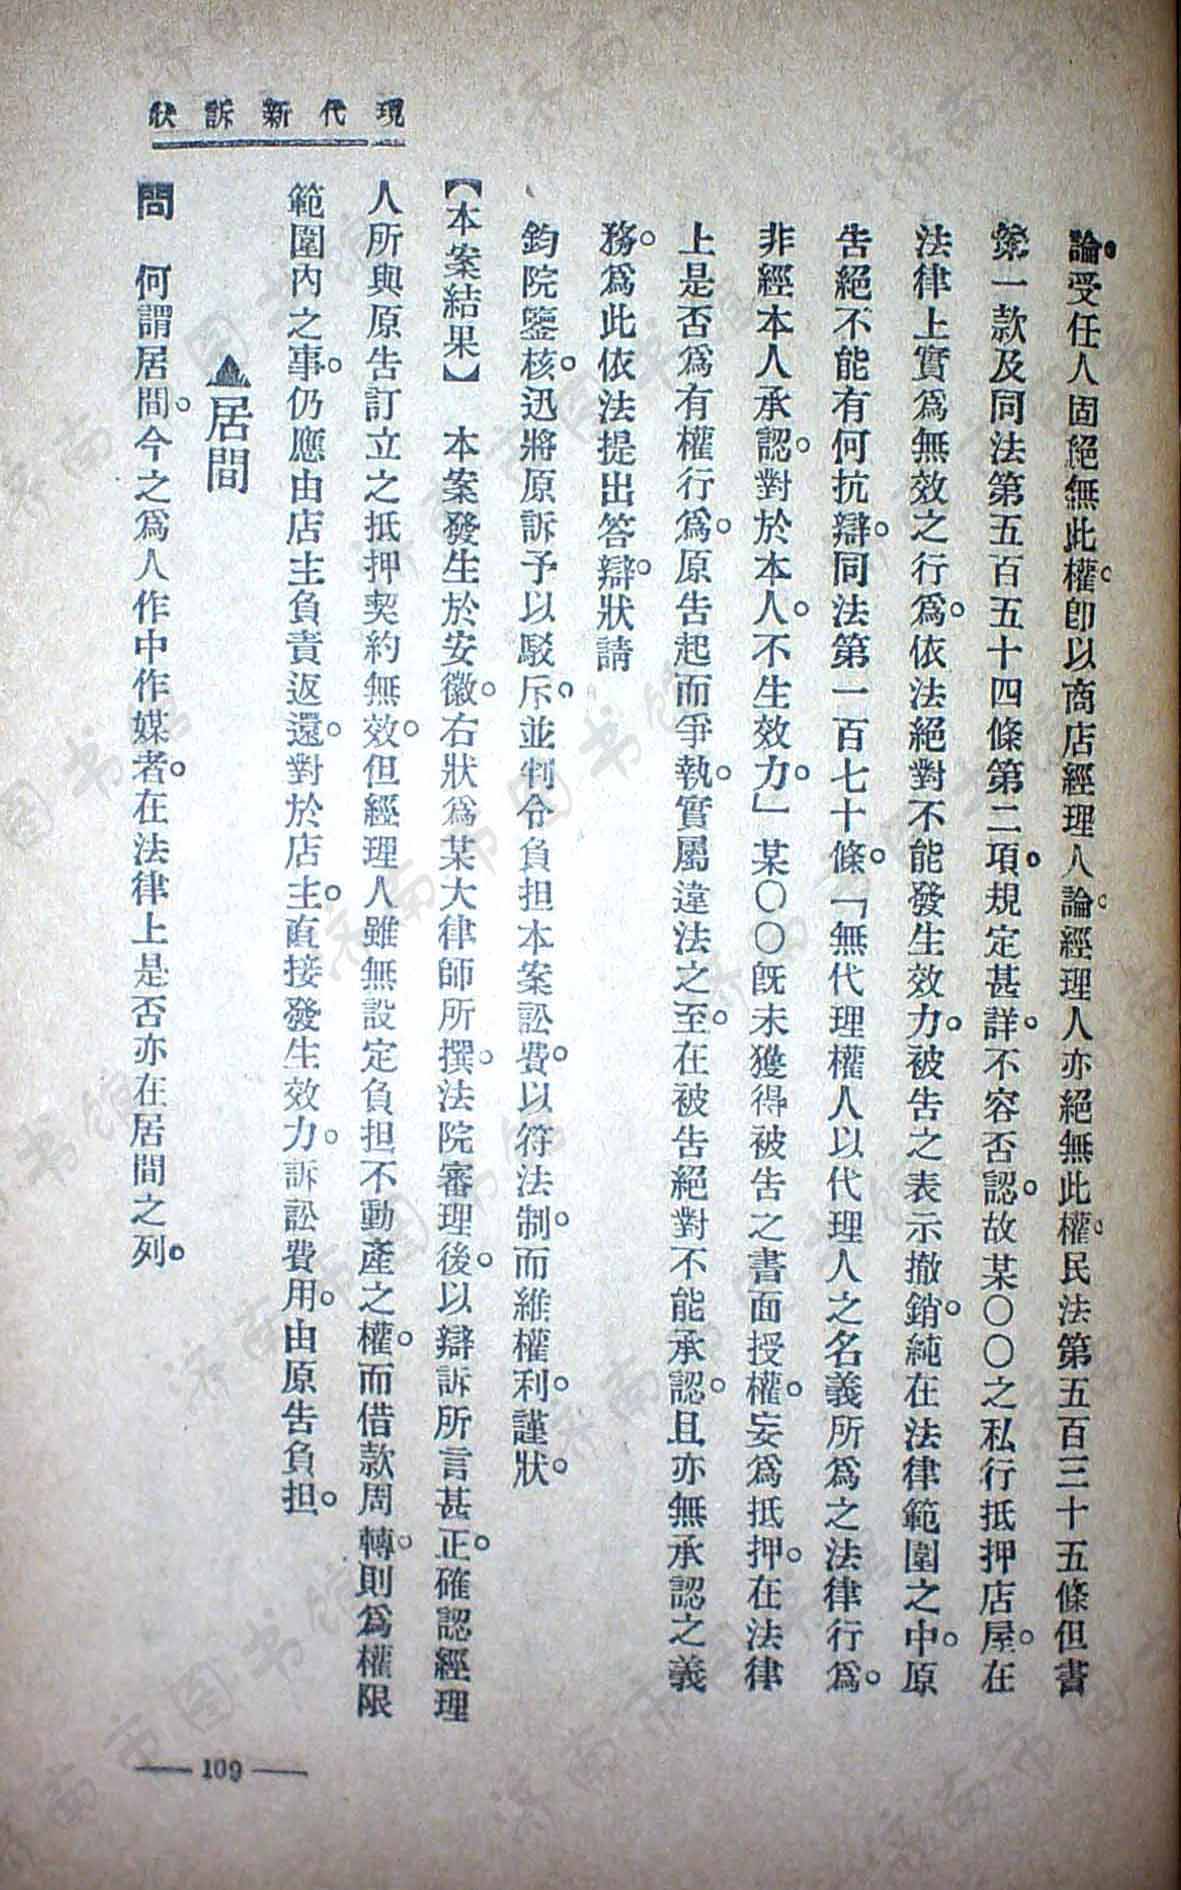 現代新訴狀
論。受任人固絕無此權。卽以商店經理人論。經理人亦絕無此權。民法第五百三十五條但書
第一款及同法第五百五十四條第二項。規定甚詳。不容否認。故某〇〇之私行抵押店屋。在
法律上實爲無效之行爲。依法絕對不能發生效力。被告之表示撤銷。純在法律範圍之中。原
告絕不能有何抗辯。同法第一百七十條。「無代理權人以代理人之名義所爲之法律行爲。
非經本人承認。對於本人。不生效力。」某〇〇旣未獲得被告之書面授權。妄爲抵押。在法律
上是否爲有權行爲。原告起而爭執。實屬違法之至。在被告絕對不能承認。且亦無承認之義
務。爲此依法提出答辯。狀請
鈞院鑒核。迅將原訴予以駁斥。並判令負担本案訟費。以符法制。而維權利。謹狀。
【本案結果】 本案發生於安徽。右狀爲某大律師所撰。法院審理後。以辯訴所言甚正。確認經理
人所與原告訂立之抵押契約無效。但經理人雖無設定負担不動產之權。而借款周轉。則爲權限
範圍內之事。仍應由店主負責返還。對於店主。直接發生效力。訴訟費用。由原告負担。
▲居間
問 何謂居間。今之爲人作中作媒者。在法律上是否亦在居間之列。
— 109 —
济南市图书馆